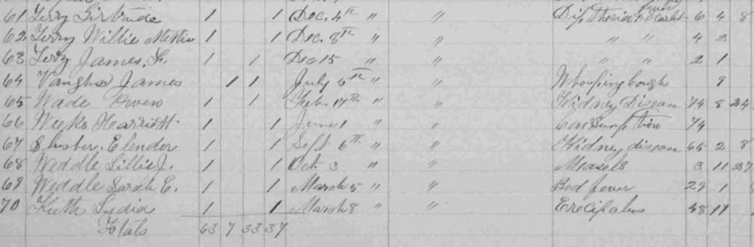 61 Terry Girtrude 1 1 Dec. 4th " " Diptheria & Scarlet fever 6 4 8
62 Terry Willie 1 1 Dec. 8th " " " " 4 2
63 Terry James 1 1 Dec 15 " " " " 2 1
64 Vaughn James 1 1 July 5th " " Whouping Cough 9
65 Wade Owen 1 1 Feb. 17th " " Kidney Disease 74 8 24
66 Weeks Harriett 1 1 June 1 " " Consumption 74
67 Elender 1 1 Sept 6th " " Kidney disease 65 2 8
68 Weddle Lillie J. 1 1 Oct 3 " " Measels 3 11 27
69 Weddle Sarah E. 1 1 March 5 " " Bed fever 29 1
70 Keith Lydia 1 1 March 8 " " 48 11
Totals 63 7 33 37